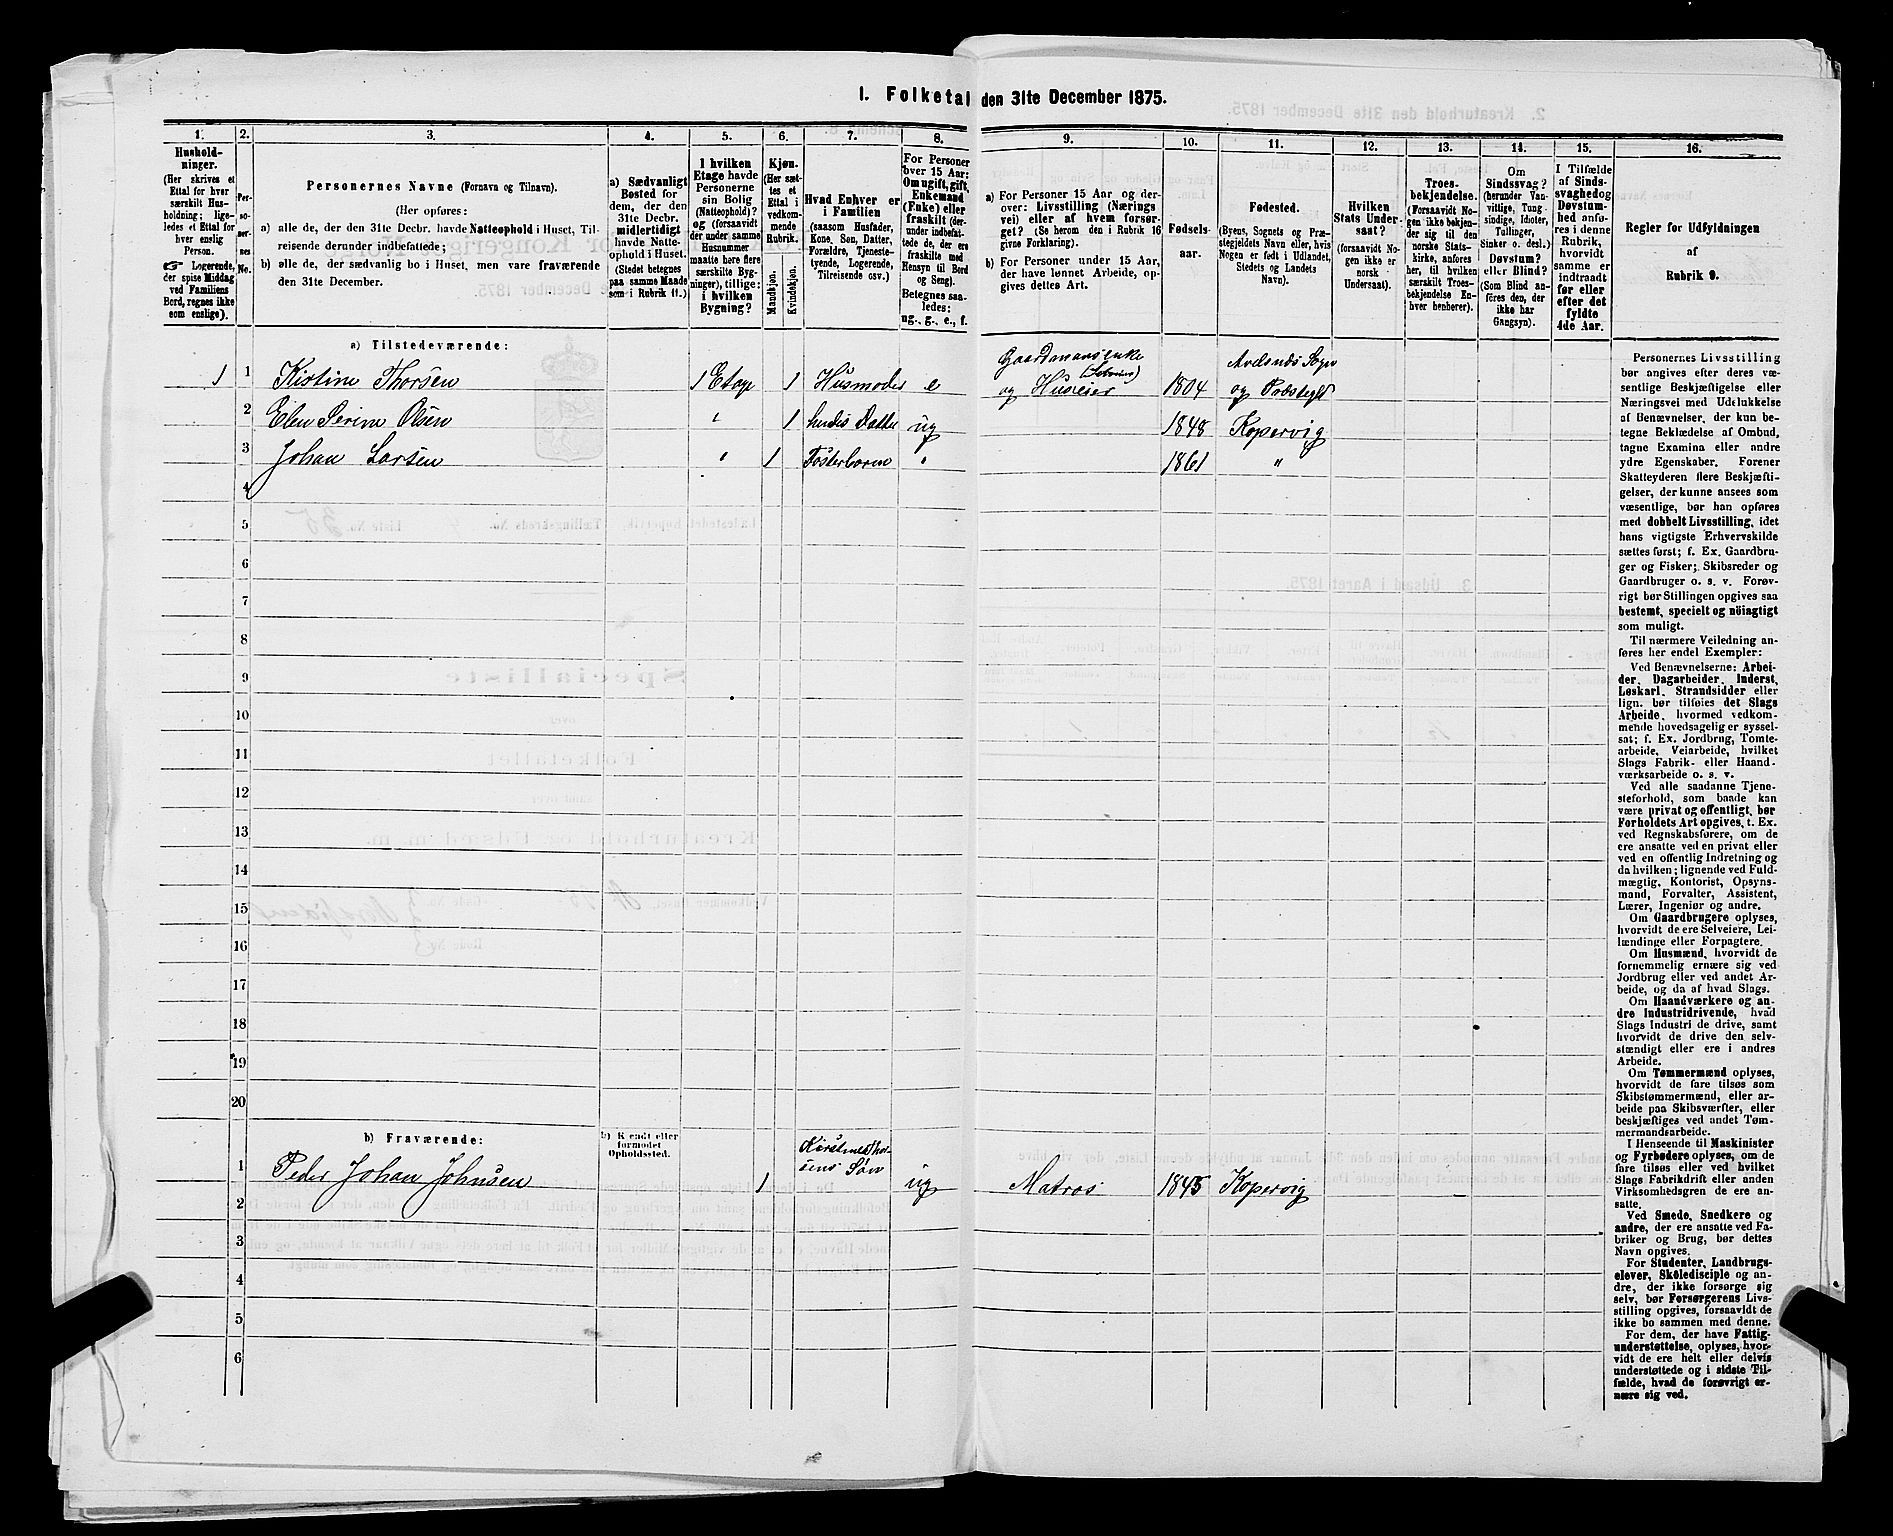 I. Folketal den 31te December 1875.
1. 2. 3. 4. 5. 6. 7. 8. 9. 10. 11. 12. 13. 14. 15. 16.
Hushold-
ninger.
(Her skrives et
Ettal for hver
særskilt Hus-
holdning; lige-
ledes et Ettal for
hver enslig
Person.
☞ Logerende,
der spise Middag
ved Familiens
Bord, regnes ikke
som enslige).
Per-
so-
ner-
nes
No.
Personernes Navne (Fornavn og Tilnavn).
(Her opføres:
a) alle de, der den 31te Decbr. havde Natteophold i Huset, Til-
reisende derunder indbefattede;
b) alle de, der sædvanlig bo i Huset, men vare fraværende
den 31te December.
a) Sædvanligt
Bosted for
dem, der den
31te Decbr.
midlertidigt
havde Natte-
ophold i Huset.
(Stedet betegnes
paa samme Maade
som i Rubrik 11.)
I hvilken
Etage havde
Personerne
sin Bolig
(Natteophold)?
og (forsaavidt
der under samme
Husnummer
maatte høre flere
særskilte Byg-
ninger), tillige:
i hvilken
Bygning?
Kjøn.
(Her sæt-
tes et
Ettal i
vedkom-
mende
Rubrik.
Mandkjøn.
Kvindekjøn.
Hvad Enhver er
i Familien
(saasom Husfader,
Kone, Søn, Datter,
Forældre, Tjeneste-
tyende, Logerende,
Tilreisende osv.)
For Personer
over 15 Aar:
Om ugift, gift,
Enkemand
(Enke) eller
fraskilt (der-
under indbefat-
tede de, der ere
fraskilte med
Hensyn til Bord
og Seng).
Betegnes saa-
ledes:
ug., g., e., f.
a) For Personer 15 Aar og der-
over: Livsstilling (Nærings
vei) eller af hvem forsør-
get? (Se herom den i Rubrik 16
givne Forklaring).
b) For Personer under 15 Aar,
der have lønnet Arbeide, op-
gives dettes Art.
Fødsels-
aar.
Fødested.
(Byens, Sognets og Præ-
stegjeldets Navn eller, hvis
Nogen er født i Udlandet,
Stedets og Landets
Navn).
Hvilken
Stats Under-
saat?
(forsaavidt No-
gen ikke er
norsk
Undersaat).
Troes-
bekjendelse.
(Forsaavidt No-
gen ikke bekjen-
der sig til den
norske Stats-
kirke, anføres
her, til hvilken
særskilt Troes-
bekjendelse En-
hver henhører).
Om
Sindssvag?
(herunder Van-
vittige, Tung-
sindige, Idioter,
Tullinger,
Sinker o. desl.)
Døvstum?
eller Blind?
(Som Blind an-
føres den, der
ikke har
Gangsyn).
I Tilfælde
af Sinds-
svaghed og
Døvstum-
hed anfø-
res i denne
Rubrik,
hvorvidt
samme er
indtraadt
før eller
efter det
fyldte
4de Aar.
Regler for Udfyldningen
af
Rubrik 9.
a) Tilstedeværende:
1 1 Kistine Thorsen 1 Etage 1 Husmoder e Gaardmansenke
og Huseier 1804 Avelsnds Sogn
og Præstegld
2 Elen Serine Olsen " 1 hendes Datter ug 1848 Kopervig
3 Johan Larsen " 1 Fosterbarn " 1861 "
4
5
6
7
8
9
10
11
12
13
14
15
16
17
18
19
20
b) Fraværende:
b) Kendt eller
formodet
Opholdssted.
1 Peder Johan Johnsen 1 Kirstine Thor-
sens Søn ug Matros 1845 Kopervig
2
3
4
5
6
Personernes Livsstilling
bør angives efter deres væ-
sentlige Beskjæftigelse eller
Næringsvei med Udelukkelse
af Benævnelser, der kun be-
tegne Beklædelse af Ombud,
tagne Examina eller andre
ydre Egenskaber. Forener
Skatteyderen flere Beskjæfti-
gelser, der kunne ansees som
væsentlige, bør han opføres
med dobbelt Livsstilling, idet
hans vigtigste Erhvervskilde
sættes først; f. Ex. Gaardbru-
ger og Fisker; Skibsreder og
Gaardbruger o. s. v. Forøv-
rigt bør Stillingen opgives saa
bestemt, specielt og nöiagtigt
som muligt.
Til nærmere Veiledning an-
føres her endel Exempler:
Ved Benævnelserne: Arbei-
der, Dagarbeider, Inderst,
Løskarl, Strandsidder eller
lign. bør tilføies det Slags
Arbeide, hvormed vedkom-
mende hovedsagelig er syssel-
sat; f. Ex. Jordbrug, Tomte-
arbeide, Veiarbeide, hvilket
Slags Fabrik- eller Haand-
værksarbeide o. s. v.
Ved alle saadanne Tjene-
steforhold, som baade kan
være privat og offentligt, bør
Forholdets Art opgives, t. Ex.
ved Regnskabsførere, om de
ere ansatte ved en privat eller
ved en offentlig Indretning og
da hvilken; lignende ved Fuld-
mægtig, Kontorist, Opsyns-
mand, Forvalter, Assistent,
Lærer, Ingeniør og andre.
Om Gaardbrugere oplyses,
hvorvidt de ere Selveiere, Lei-
lændinge eller Forpagtere.
Om Husmænd, hvorvidt de
fornemmelig ernære sig ved
Jordbrug eller ved andet Ar-
beide, og da af hvad Slags.
Om Haandværkere og an-
dre Industridrivende, hvad
Slags Industri de drive, samt
hvorvidt de drive den selv-
stændigt eller ere i andres
Arbeide.
Om Tømmermænd oplyses,
hvorvidt de fare tilsøs som
Skibstømmermænd, eller ar-
beide paa Skibsværfter, eller
beskjæftiges ved andet Tøm-
mermandsarbeide.
I Henseende til Maskinister
og Fyrbødere oplyses, om de
fare tilsøs eller ved hvilket
Slags Fabrikdrift eller anden
Virksomhedsgren de ere an-
satte.
Ved Smede, Snedkere og
andre, der ere ansatte ved Fa-
briker og Brug, bør dettes
Navn opgives.
For Studenter, Landbrugs-
elever, Skoledisciple og an-
dre, der ikke forsørge sig
selv, bør Forsørgerens Livs-
stilling opgives, forsaavidt de
ikke bo sammen med denne.
For dem, der have Fattig-
understøttelse, oplyses, hvor-
vidt de ere helt eller delvis
understøttede og i sidste Til-
fælde, hvad de forøvrigt er-
nære sig ved.